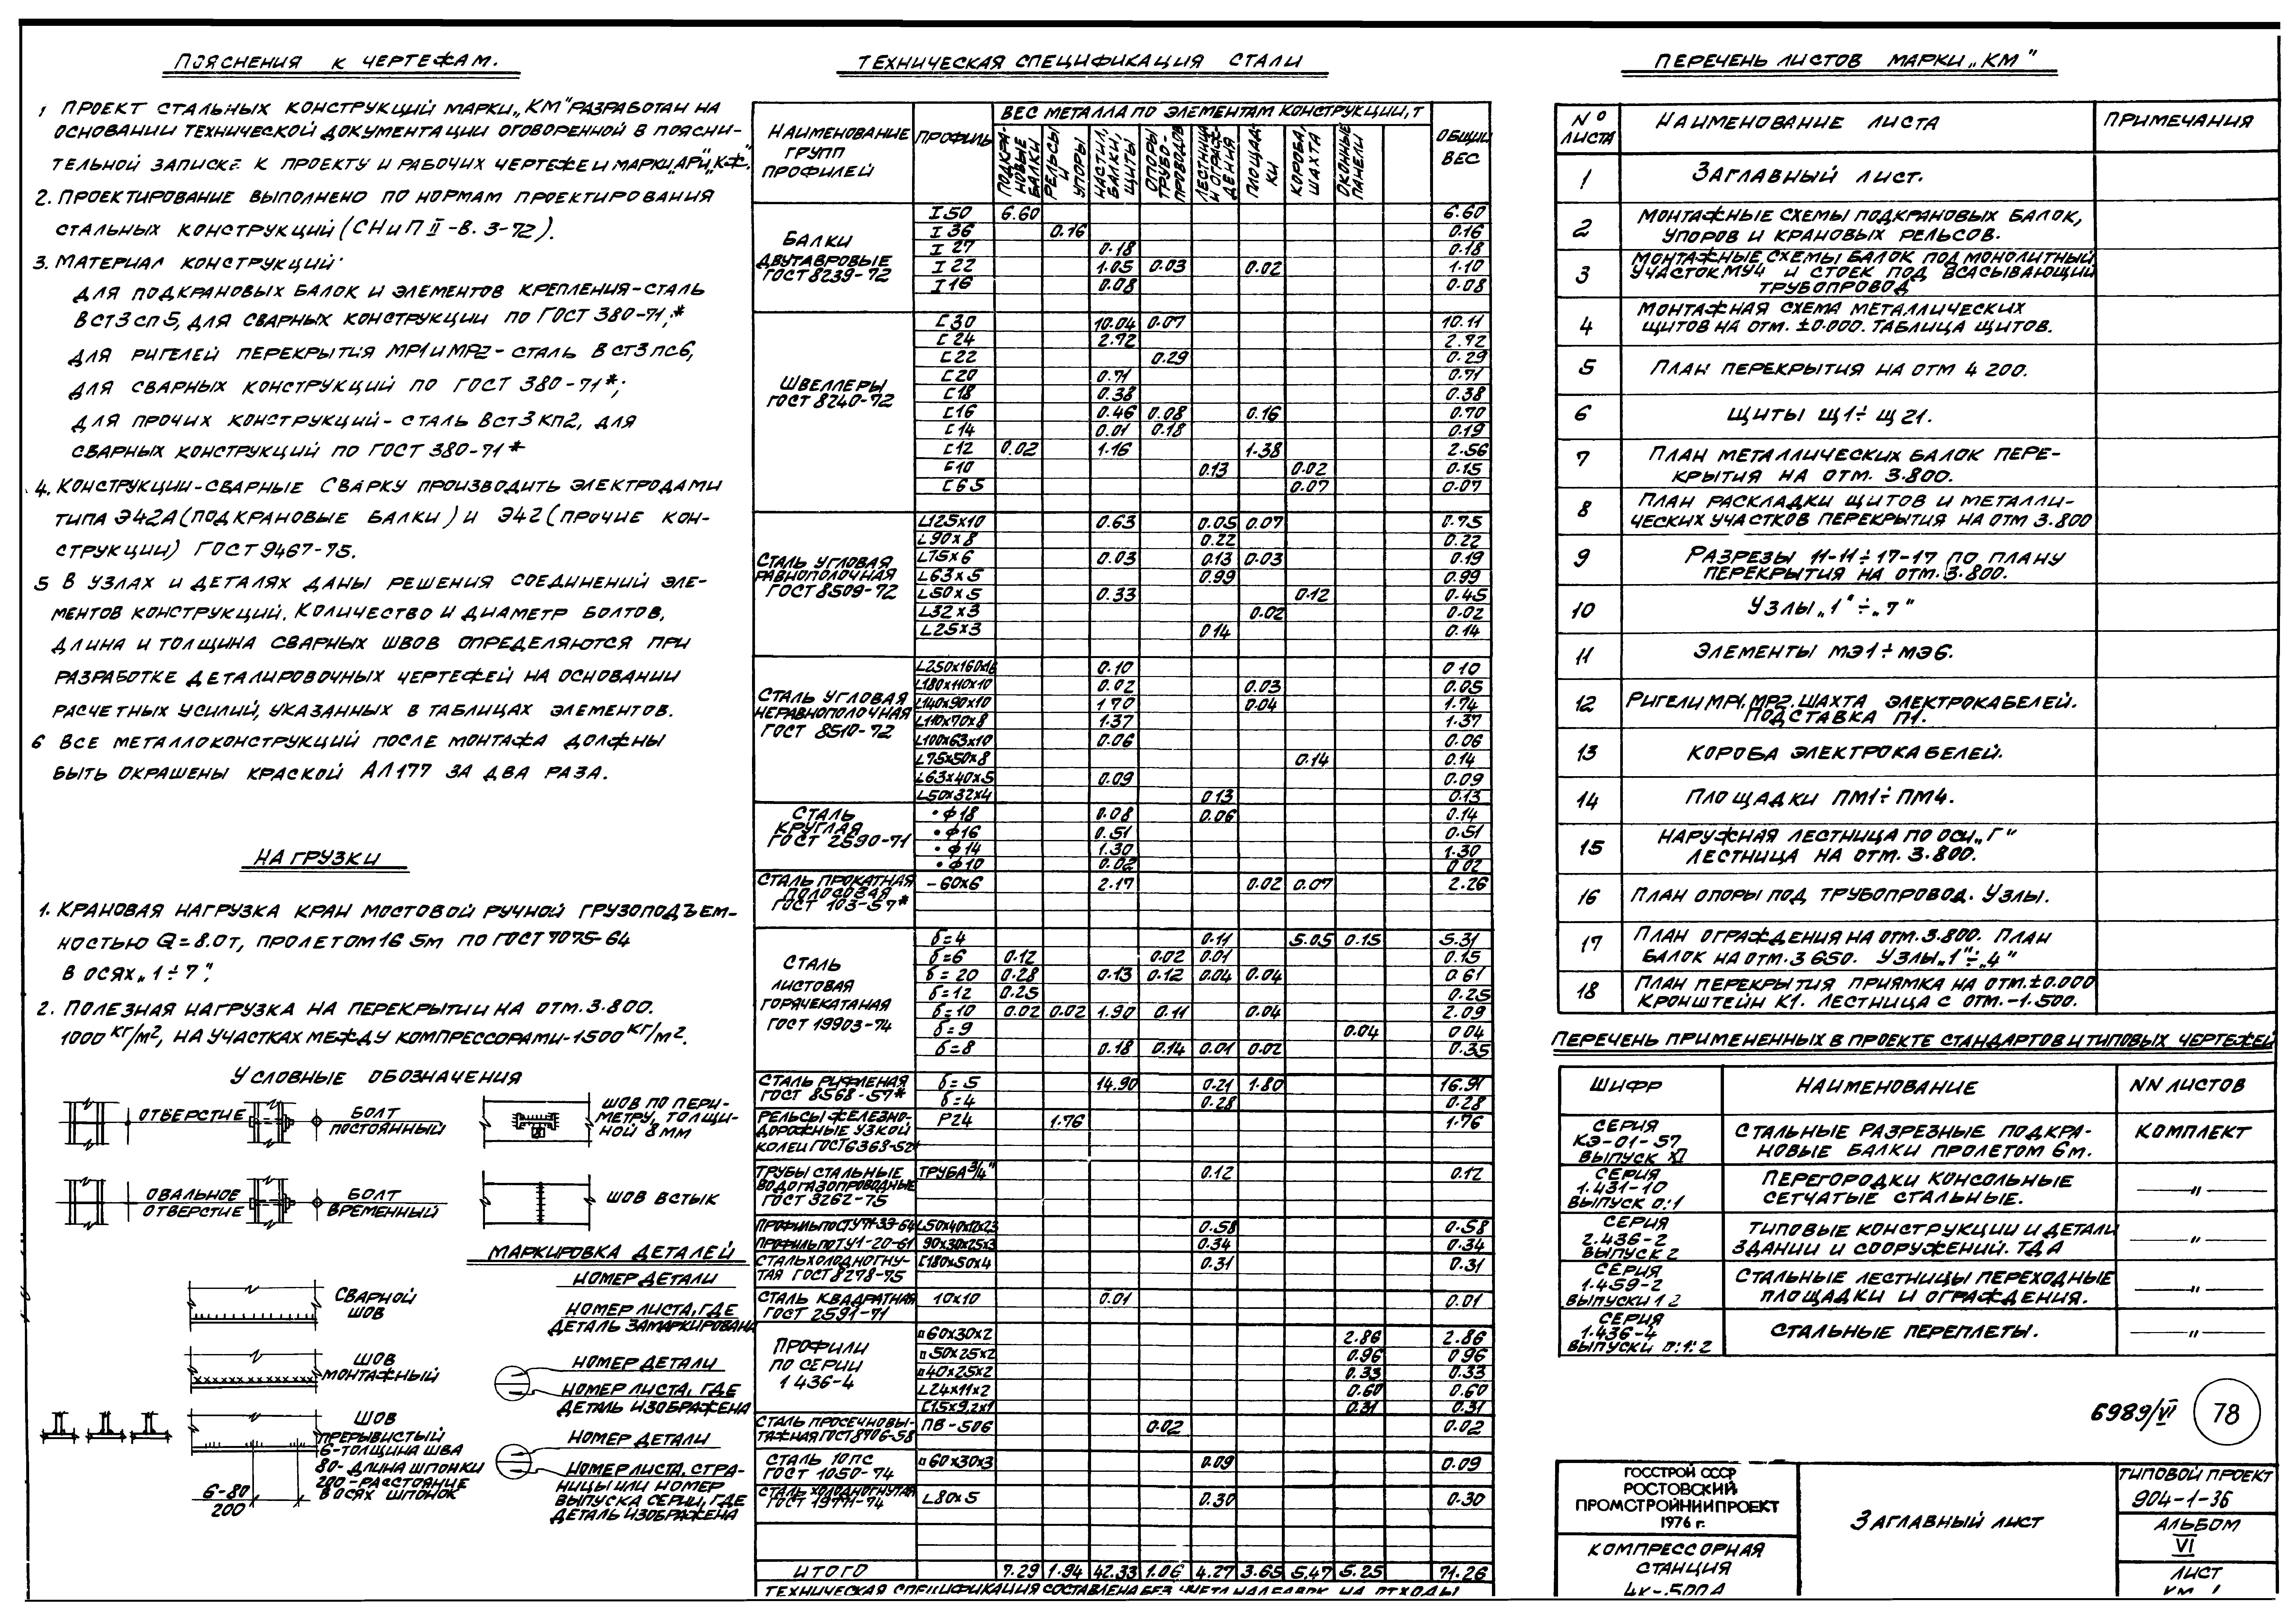 ПОЯСНЕНИЯ К ЧЕРТЕЖАМ.
1 ПРОЕКТ СТАЛЬНЫХ КОНСТРУКЦИЙ МАРКИ „КМ" РАЗРАБОТАН НА
ОСНОВАНИИ ТЕХНИЧЕСКОЙ ДОКУМЕНТАЦИИ ОГОВОРЕННОЙ В ПОЯСНИ-
ТЕЛЬНОЙ ЗАПИСКЕ К ПРОЕКТУ И РАБОЧИХ ЧЕРТЕЖЕЙ МАРКИ „АР" И „КЖ".
2. ПРОЕКТИРОВАНИЕ ВЫПОЛНЕНО ПО НОРМАМ ПРОЕКТИРОВАНИЯ
СТАЛЬНЫХ КОНСТРУКЦИЙ (СНиП II-В. 3-72).
3. МАТЕРИАЛ КОНСТРУКЦИЙ:
ДЛЯ ПОДКРАНОВЫХ БАЛОК И ЭЛЕМЕНТОВ КРЕПЛЕНИЯ-СТАЛЬ
ВСТ3СП5, ДЛЯ СВАРНЫХ КОНСТРУКЦИИ ПО ГОСТ 380-71;*
ДЛЯ РИГЕЛЕЙ ПЕРЕКРЫТИЯ МР1 И МР2-СТАЛЬ ВСТ3ПС6,
ДЛЯ СВАРНЫХ КОНСТРУКЦИЙ ПО ГОСТ 380-71*;
ДЛЯ ПРОЧИХ КОНСТРУКЦИЙ-СТАЛЬ ВСТ3КП2, ДЛЯ
СВАРНЫХ КОНСТРУКЦИЙ ПО ГОСТ 380-71*
4. КОНСТРУКЦИИ-СВАРНЫЕ СВАРКУ ПРОИЗВОДИТЬ ЭЛЕКТРОДАМИ
ТИПА Э42А (ПОДКРАНОВЫЕ БАЛКИ) И Э42 (ПРОЧИЕ КОН-
СТРУКЦИИ) ГОСТ 9467-75.
5 В УЗЛАХ И ДЕТАЛЯХ ДАНЫ РЕШЕНИЯ СОЕДИНЕНИЙ ЭЛЕ-
МЕНТОВ КОНСТРУКЦИЙ. КОЛИЧЕСТВО И ДИАМЕТР БОЛТОВ,
ДЛИНА И ТОЛЩИНА СВАРНЫХ ШВОВ ОПРЕДЕЛЯЮТСЯ ПРИ
РАЗРАБОТКЕ ДЕТАЛИРОВОЧНЫХ ЧЕРТЕЖЕЙ НА ОСНОВАНИИ
РАСЧЕТНЫХ УСИЛИЙ, УКАЗАННЫХ В ТАБЛИЦАХ ЭЛЕМЕНТОВ.
6 ВСЕ МЕТАЛЛОКОНСТРУКЦИЙ ПОСЛЕ МОНТАЖА ДОЛЖНЫ
БЫТЬ ОКРАШЕНЫ КРАСКОЙ АЛ177 ЗА ДВА РАЗА.
НАГРУЗКИ
1. КРАНОВАЯ НАГРУЗКА КРАН МОСТОВОЙ РУЧНОЙ ГРУЗОПОДЪЕМ-
НОСТЬЮ Q=8.0Т, ПРОЛЕТОМ 16 5М ПО ГОСТ 7075-64
В ОСЯХ „1÷7";
2. ПОЛЕЗНАЯ НАГРУЗКА НА ПЕРЕКРЫТИИ НА ОТМ. 3.800.
1000 КГ/М², НА УЧАСТКАХ МЕЖДУ КОМПРЕССОРАМИ-1500 КГ/М².
УСЛОВНЫЕ ОБОЗНАЧЕНИЯ
ОТВЕРСТИЕ
БОЛТ ПОСТОЯННЫЙ
ШОВ ПО ПЕРИ-
МЕТРУ, ТОЛЩИ-
НОЙ 8ММ
ОВАЛЬНОЕ ОТВЕРСТИЕ
БОЛТ ВРЕМЕННЫЙ
ШОВ ВСТЫК
СВАРНОЙ ШОВ
ШОВ МОНТАЖНЫЙ
ШОВ ПРЕРЫВИСТЫЙ
6-ТОЛЩИНА ШВА
80-ДЛИНА ШПОНКИ
200-РАССТОЯНИЕ
В ОСЯХ ШПОНОК
6-80
200
МАРКИРОВКА ДЕТАЛЕЙ
НОМЕР ДЕТАЛИ
НОМЕР ЛИСТА, ГДЕ
ДЕТАЛЬ ЗАМАРКИРОВАНА
НОМЕР ДЕТАЛИ
НОМЕР ЛИСТА, ГДЕ
ДЕТАЛЬ ИЗОБРАЖЕНА
НОМЕР ДЕТАЛИ
НОМЕР ЛИСТА, СТРА-
НИЦЫ ИЛИ НОМЕР
ВЫПУСКА СЕРИИ, ГДЕ
ДЕТАЛЬ ИЗОБРАЖЕНА
ТЕХНИЧЕСКАЯ СПЕЦИФИКАЦИЯ СТАЛИ
НАИМЕНОВАНИЕ ГРУПП ПРОФИЛЕЙ
ПРОФИЛЬ
ВЕС МЕТАЛЛА ПО ЭЛЕМЕНТАМ КОНСТРУКЦИИ, Т
ОБЩИЙ ВЕС
ПОДКРА-НОВЫЕ БАЛКИ
РЕЛЬСЫ И УПОРЫ
НАСТИЛ, БАЛКИ, ЩИТЫ
ОПОРЫ ТРУБО-ПРОВОДОВ
ЛЕСТНИЦЫ И ОГРАЖ-ДЕНИЯ
ПЛОЩАД-КИ
КОРОБА, ШАХТА
ОКОННЫЕ ПАНЕЛИ
БАЛКИ ДВУТАВРОВЫЕ ГОСТ 8239-72
I 50 6.60 6.60
I 36 0.16 0.16
I 27 0.18 0.18
I 22 1.05 0.03 0.02 1.10
I 16 0.08 0.08
ШВЕЛЛЕРЫ ГОСТ 8240-72
[ 30 10.04 0.07 10.11
[ 24 2.72 2.72
[ 22 0.29 0.29
[ 20 0.71 0.71
[ 18 0.38 0.38
[ 16 0.46 0.08 0.16 0.70
[ 14 0.01 0.18 0.19
[ 12 0.02 1.16 1.38 2.56
[ 10 0.13 0.02 0.15
[ 6.5 0.07 0.07
СТАЛЬ УГЛОВАЯ РАВНОПОЛОЧНАЯ ГОСТ 8509-72
L125х10 0.63 0.05 0.07 0.75
L90х8 0.22 0.22
L75х6 0.03 0.13 0.03 0.19
L63х5 0.99 0.99
L50х5 0.33 0.12 0.45
L32х3 0.02 0.02
L25х3 0 14 0.14
СТАЛЬ УГЛОВАЯ НЕРАВНОПОЛОЧНАЯ ГОСТ 8510-72
L250х160х16 0.10 0 10
L180х110х10 0.02 0.03 0.05
L140х90х10 1 70 0.04 1.74
L110х70х8 1.37 1.37
L100х63х10 0.06 0.06
L75х50х8 0.14 0.14
L63х40х5 0.09 0.09
L50х32х4 0 13 0.13
СТАЛЬ КРУГЛАЯ ГОСТ 2590-71
• ф18 0.08 0.06 0.14
• ф16 0.51 0.51
• ф14 1.30 1.30
• ф10 0.02 0 02
СТАЛЬ ПРОКАТНАЯ ПОЛОСОВАЯ ГОСТ 103-57*
-60х6 2.17 0.02 0.07 2.26
СТАЛЬ ЛИСТОВАЯ ГОРЯЧЕКАТАНАЯ ГОСТ 19903-74
δ=4 0.11 5.05 0.15 5.31
δ=6 0.12 0.02 0.01 0.15
δ=20 0.28 0.13 0.12 0.04 0.04 0 61
δ=12 0.25 0.25
δ=10 0.02 0.02 1.90 0.11 0.04 2.09
δ=9 0.04 0.04
δ=8 0.18 0.14 0.01 0.02 0.35
СТАЛЬ РИФЛЕНАЯ ГОСТ 8568-57*
δ=5 14.90 0.21 1.80 16.91
δ=4 0.28 0.28
РЕЛЬСЫ ЖЕЛЕЗНО-ДОРОЖНЫЕ УЗКОЙ КОЛЕИ ГОСТ 6368-52*
Р24 1.76 1.76
ТРУБЫ СТАЛЬНЫЕ ВОДОГАЗОПРОВОДНЫЕ ГОСТ 3262-75
ТРУБА 3/4" 0.12 0.12
L50х40х12х2,5 0.58 0.58
ПРОФИЛЬ ПО ТУ1-20-61 90х30х25х3 0.34 0.34
СТАЛЬ ХОЛОДНОГНУ-ТАЯ ГОСТ 8278-75 [180х50х4 0.31 0.31
СТАЛЬ КВАДРАТНАЯ ГОСТ 2591-71 10х10 0.01 0.01
ПРОФИЛИ ПО СЕРИИ 1 436-4
□60х30х2 2.86 2.86
□50х25х2 0.96 0 96
□40х25х2 0.33 0.33
L24х11х2 0.60 0.60
[15х9,2х1 0.31 0.31
СТАЛЬ ПРОСЕЧНОВЫ-ТАЖНАЯ ГОСТ 8706-58 ПВ-506 0.02 0.02
СТАЛЬ 10ПС ГОСТ 1050-74 □60х30х3 0.09 0.09
СТАЛЬ ХОЛОДНОГНУТАЯ ГОСТ 19771-74 L80х5 0.30 0.30
ИТОГО 7.29 1.94 42.33 1.06 4.27 3.65 5.47 5.25 71.26
ТЕХНИЧЕСКАЯ СПЕЦИФИКАЦИЯ СОСТАВЛЕНА БЕЗ УЧЕТА НАДБАВОК НА ОТХОДЫ
ПЕРЕЧЕНЬ ЛИСТОВ МАРКИ „КМ"
N° ЛИСТА НАИМЕНОВАНИЕ ЛИСТА ПРИМЕЧАНИЯ
1 ЗАГЛАВНЫЙ ЛИСТ.
2 МОНТАЖНЫЕ СХЕМЫ ПОДКРАНОВЫХ БАЛОК,
УПОРОВ И КРАНОВЫХ РЕЛЬСОВ.
3 МОНТАЖНЫЕ СХЕМЫ БАЛОК ПОД МОНОЛИТНЫЙ
УЧАСТОК МУ4 И СТОЕК ПОД ВСАСЫВАЮЩИЙ
ТРУБОПРОВОД
4 МОНТАЖНАЯ СХЕМА МЕТАЛЛИЧЕСКИХ
ЩИТОВ НА ОТМ. ±0.000. ТАБЛИЦА ЩИТОВ.
5 ПЛАН ПЕРЕКРЫТИЯ НА ОТМ 4 200.
6 ЩИТЫ Щ1÷Щ21.
7 ПЛАН МЕТАЛЛИЧЕСКИХ БАЛОК ПЕРЕ-
КРЫТИЯ НА ОТМ. 3.800.
8 ПЛАН РАСКЛАДКИ ЩИТОВ И МЕТАЛЛИ-
ЧЕСКИХ УЧАСТКОВ ПЕРЕКРЫТИЯ НА ОТМ 3.800
9 РАЗРЕЗЫ 11-11÷17-17 ПО ПЛАНУ
ПЕРЕКРЫТИЯ НА ОТМ. 3.800.
10 УЗЛЫ „1"÷„7"
11 ЭЛЕМЕНТЫ МЭ1÷МЭ6.
12 РИГЕЛИ МР1, МР2. ШАХТА ЭЛЕКТРОКАБЕЛЕЙ.
ПОДСТАВКА П1.
13 КОРОБА ЭЛЕКТРОКАБЕЛЕЙ.
14 ПЛОЩАДКИ ПМ1÷ПМ4.
15 НАРУЖНАЯ ЛЕСТНИЦА ПО ОСИ „Г"
ЛЕСТНИЦА НА ОТМ. 3.800.
16 ПЛАН ОПОРЫ ПОД ТРУБОПРОВОД. УЗЛЫ.
17 ПЛАН ОГРАЖДЕНИЯ НА ОТМ. 3.800. ПЛАН
БАЛОК НА ОТМ. 3 650. УЗЛЫ „1"÷„4"
18 ПЛАН ПЕРЕКРЫТИЯ ПРИЯМКА НА ОТМ. ±0.000
КРОНШТЕЙН К1. ЛЕСТНИЦА С ОТМ. -1.500.
ПЕРЕЧЕНЬ ПРИМЕНЕННЫХ В ПРОЕКТЕ СТАНДАРТОВ И ТИПОВЫХ ЧЕРТЕЖЕЙ
ШИФР НАИМЕНОВАНИЕ NN ЛИСТОВ
СЕРИЯ КЭ-01-57 ВЫПУСК XI СТАЛЬНЫЕ РАЗРЕЗНЫЕ ПОДКРА-НОВЫЕ БАЛКИ ПРОЛЕТОМ 6М. КОМПЛЕКТ
СЕРИЯ 1.431-10 ВЫПУСК 0;1 ПЕРЕГОРОДКИ КОНСОЛЬНЫЕ СЕТЧАТЫЕ СТАЛЬНЫЕ. —"—
СЕРИЯ 2.436-2 ВЫПУСК 2 ТИПОВЫЕ КОНСТРУКЦИИ И ДЕТАЛИ ЗДАНИИ И СООРУЖЕНИЙ. ТДА —"—
СЕРИЯ 1.459-2 ВЫПУСКИ 1 2 СТАЛЬНЫЕ ЛЕСТНИЦЫ ПЕРЕХОДНЫЕ ПЛОЩАДКИ И ОГРАЖДЕНИЯ. —"—
СЕРИЯ 1.436-4 ВЫПУСКИ 0;1;2 СТАЛЬНЫЕ ПЕРЕПЛЕТЫ. —"—
6989/VI 78
ГОССТРОЙ СССР
РОСТОВСКИЙ
ПРОМСТРОЙНИИПРОЕКТ
1976 г.
КОМПРЕССОРНАЯ
СТАНЦИЯ
4К-500А
ЗАГЛАВНЫЙ ЛИСТ
ТИПОВОЙ ПРОЕКТ
904-1-36
АЛЬБОМ
VI
ЛИСТ
КМ-1